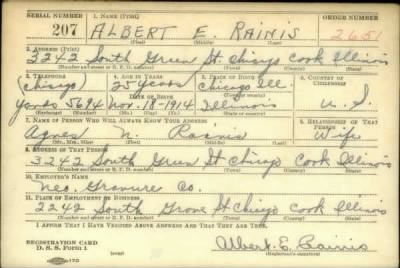 SERIAL NUMBER 1. NAME (Print) ORDER NUMBER
207 ALBERT E. RAINIS 2651
(First) (Middle) (Last)
2. ADDRESS (Print)
3242 South Green St. Chicago Cook Illinois
(Number and street or R. F. D. number) (Town) (County) (State)
3. TELEPHONE 4. AGE IN YEARS 5. PLACE OF BIRTH 6. COUNTRY OF CITIZENSHIP
Chicago 25 years Chicago Ill.
Yards 5694 Nov. 18-1914 Illinois U. S.
7. NAME OF PERSON WHO WILL ALWAYS KNOW YOUR ADDRESS 8. RELATIONSHIP OF THAT PERSON
Agnes N. Rainis Wife
(Mr., Mrs., Miss) (First) (Middle) (Last)
9. ADDRESS OF THAT PERSON
3242 South Green St Chicago Cook Illinois
(Number and street or R. F. D. number) (Town) (County) (State)
10. EMPLOYER'S NAME
Neo. Gravure Co.
11. PLACE OF EMPLOYMENT OR BUSINESS
2242 South Grove St Chicago Cook Illinois
(Number and street or R. F. D. number) (Town) (County) (State)
I AFFIRM THAT I HAVE VERIFIED ABOVE ANSWERS AND THAT THEY ARE TRUE.
REGISTRATION CARD
D. S. S. Form 1 Albert E. Rainis
(over) (Registrant's signature)